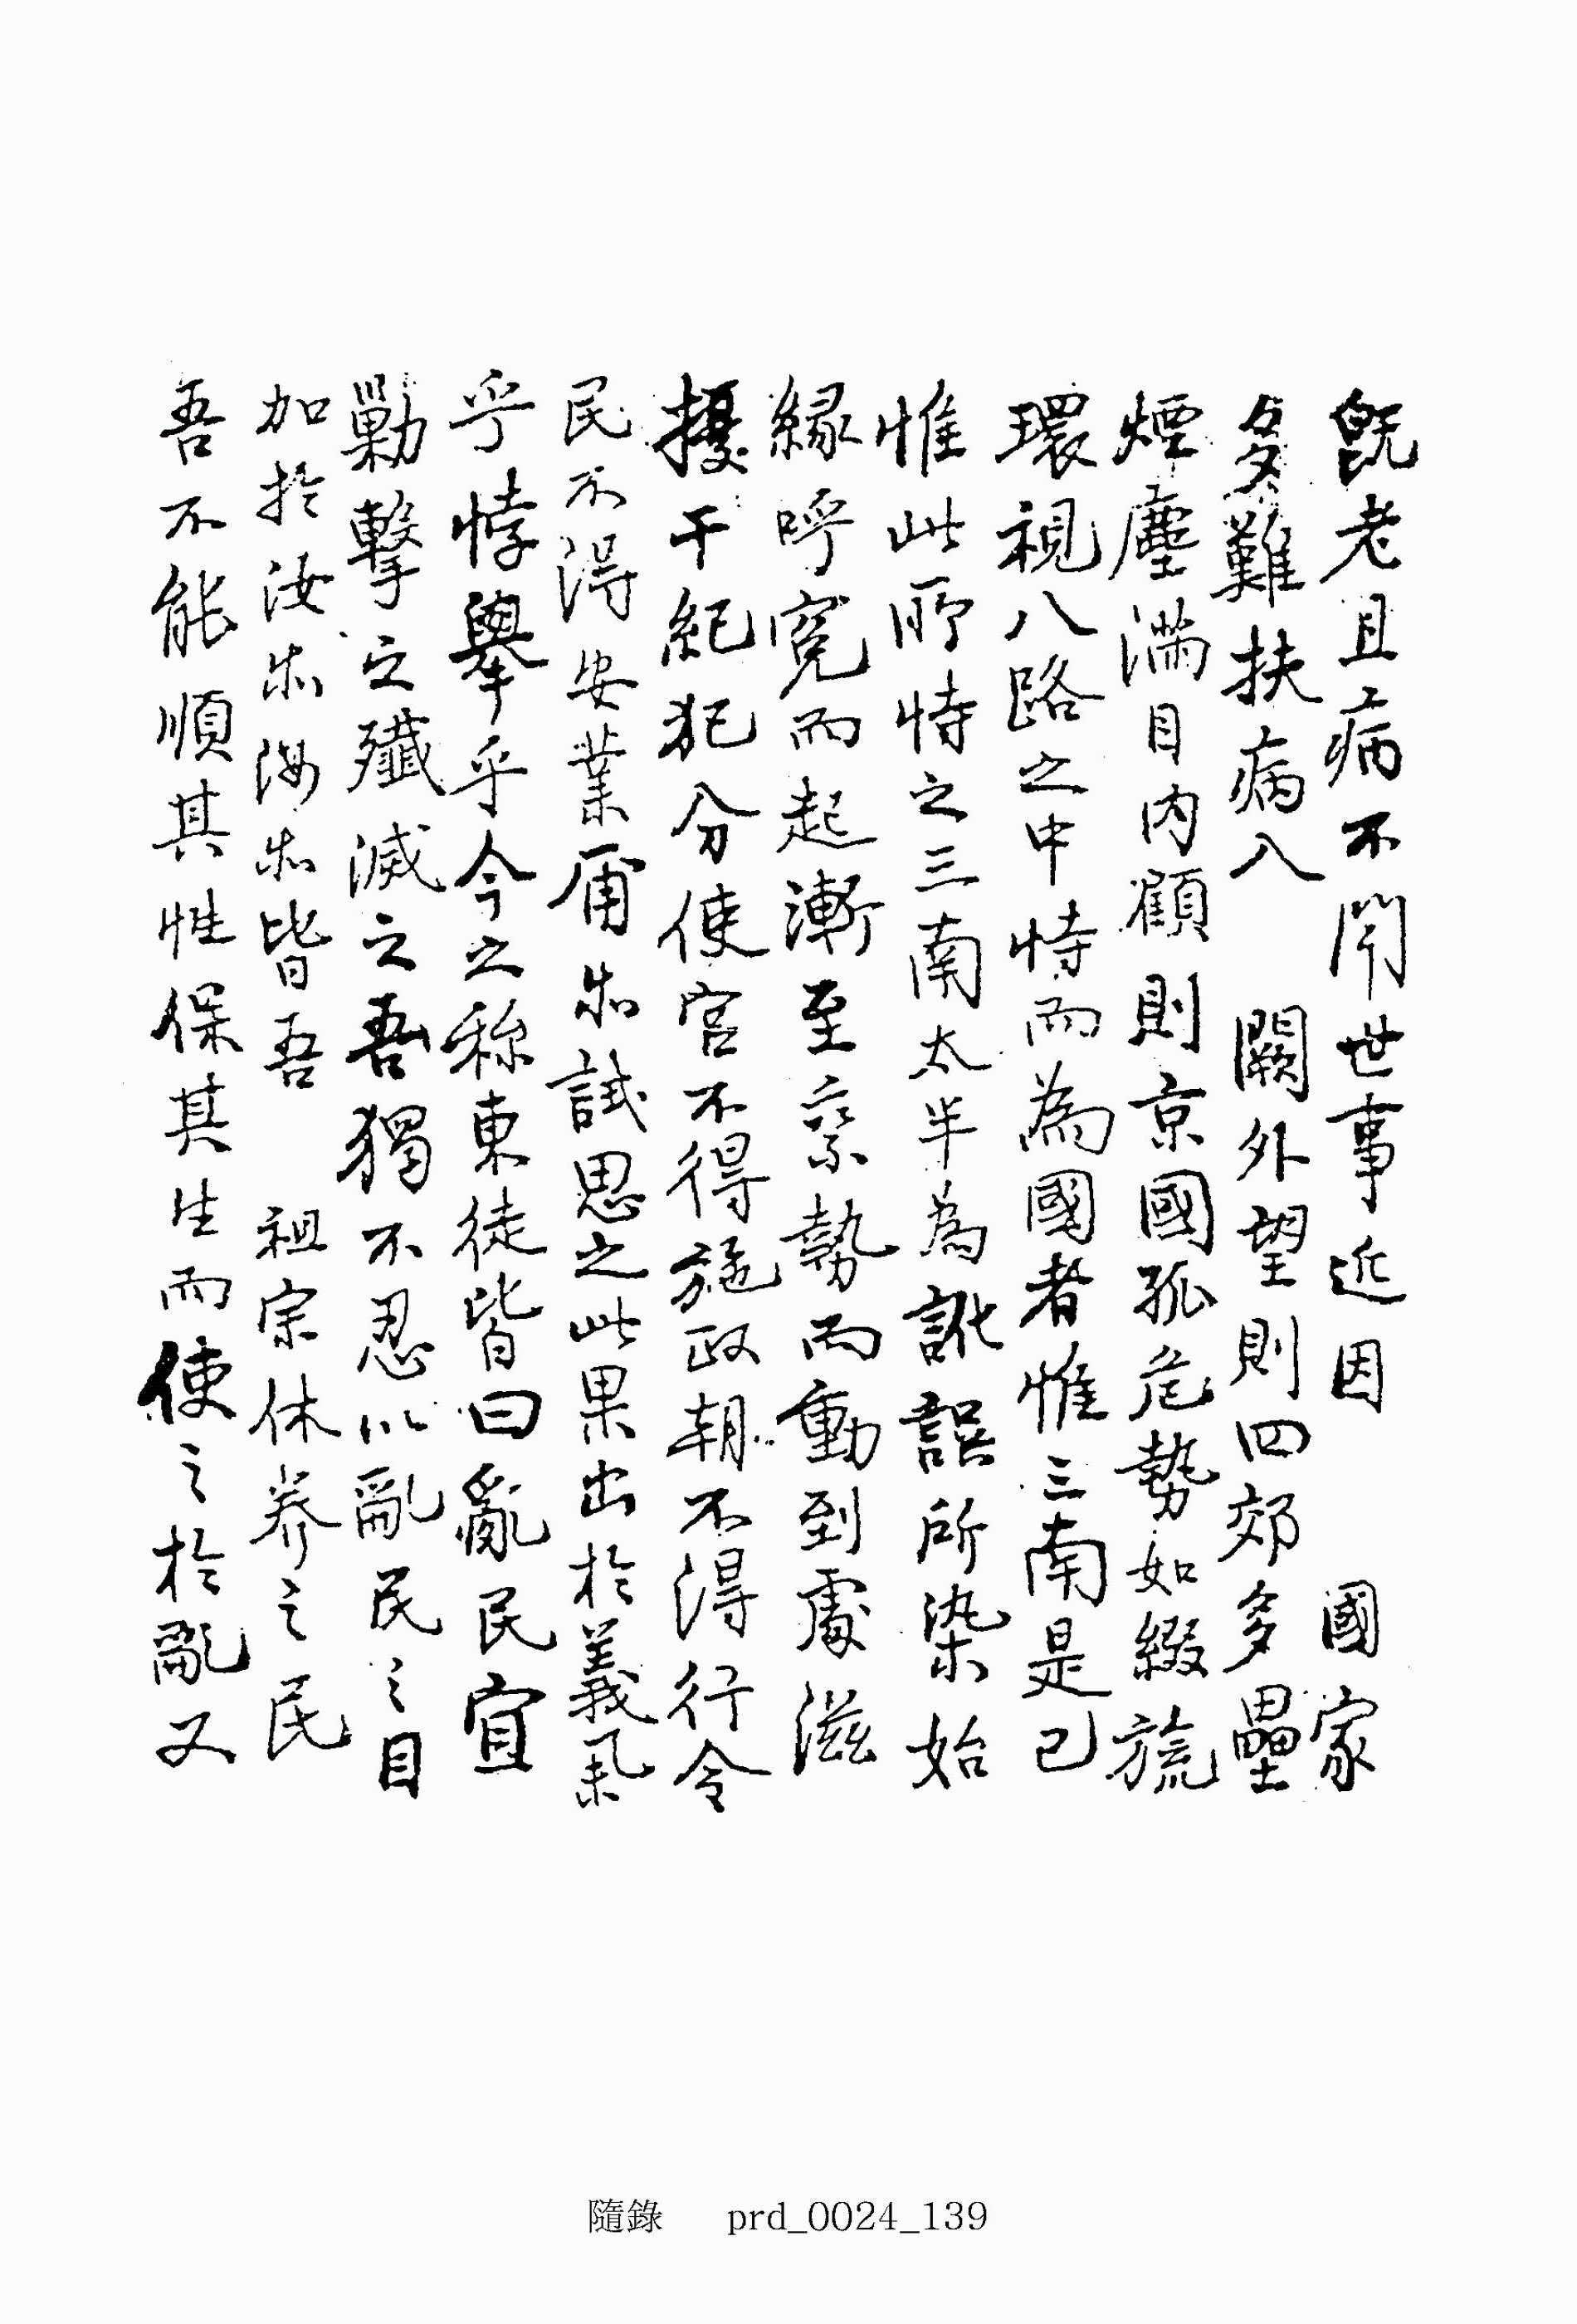 旣老且病不聞世事近因 國家
多難扶病入 闕外望則四郊多壘
煙塵滿目內顧則京國孤危勢如綴旒
環視八路之中恃而爲國者惟三南是已
惟此所恃之三南太半爲訛誤所染始
緣呼寃而起漸至乘勢而動到處滋
擾干紀犯分使官不得施政朝不得行令
民不得安業爾等試思之此果出於義氣
乎悖擧乎今之称東徒皆曰亂民宜
勦擊之殲滅之吾獨不忍以亂民之目
加於汝等汝等皆吾 祖宗休养之民
吾不能順其性保其生而使之於亂又
隨錄 prd_0024_139